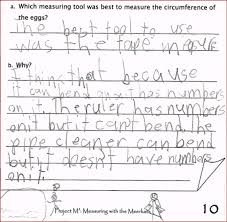 a. Which measuring tool was best to measure the circumference of
the eggs?
The best tool to use
was the tape
b. Why?
I think that because
it can bend and it has numbers
on it. The ruler has numbers
on it but it can't bend. The
pipe cleaner can bend
but it doesn't have numbers
on it.
Project M²: Measuring with the Meerkats
10